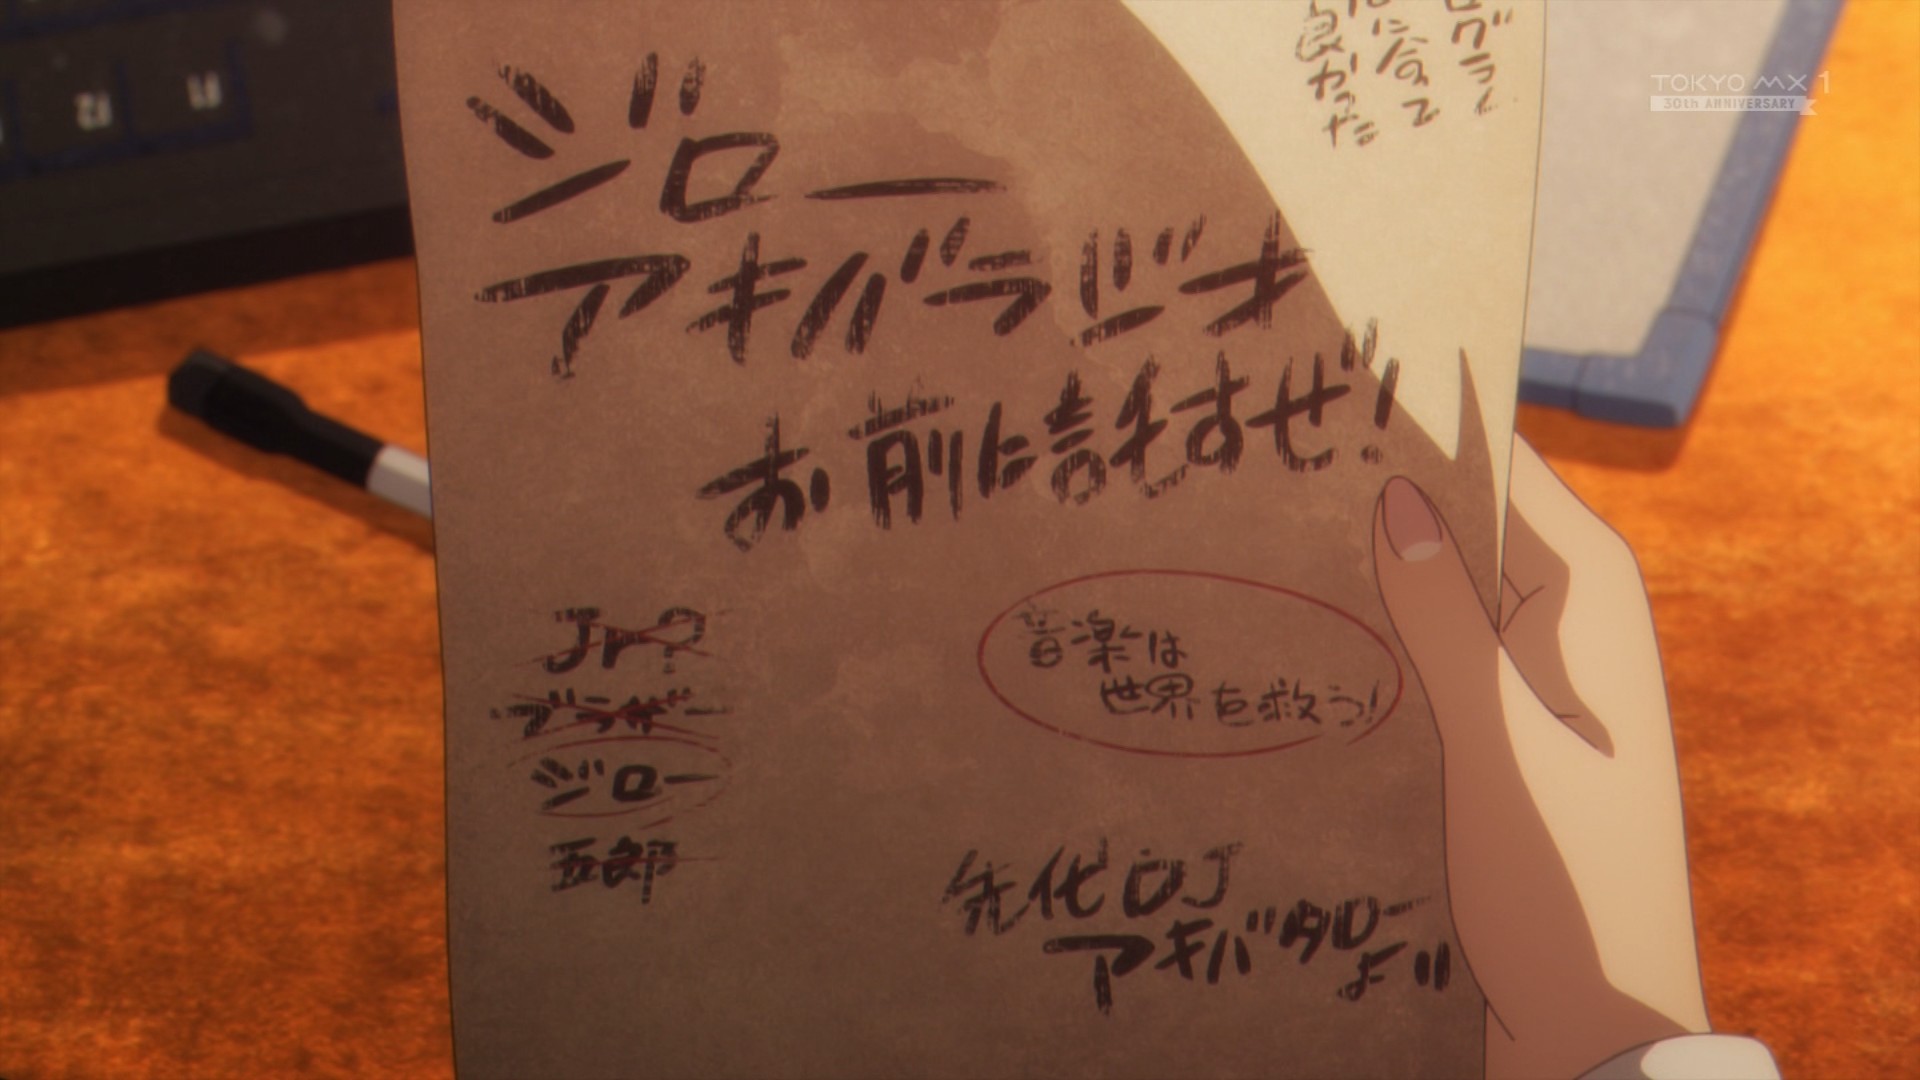 ジロー
アキバラジオ
お前に託すぜ!
Jr?
ブラザー
ジロー
五郎
音楽は
世界を救う!
先代DJ
アキバタロー
より
良かった
TOKYO MX 1
30th ANNIVERSARY
F2
F1